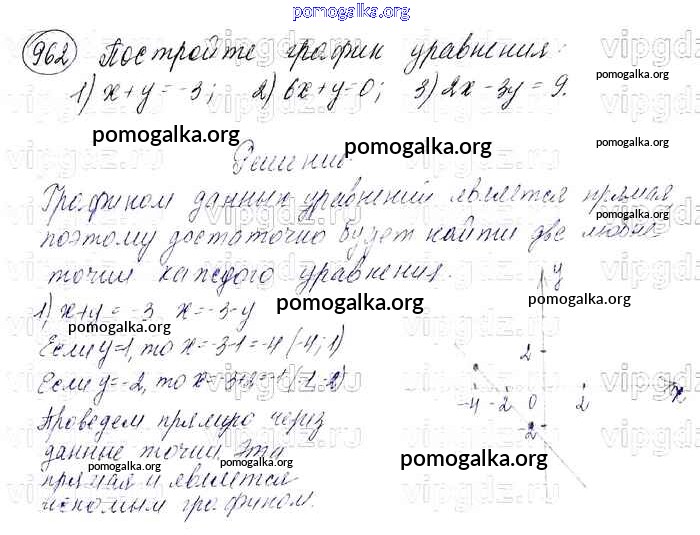 pomogalka.org
962 Постройте график уравнения:
1) x+y=-3; 2) 6x+y=0; 3) 2x-3y=9.
pomogalka.org
pomogalka.org
pomogalka.org
pomogalka.org
Решение.
Графиком данных уравнений является прямая
pomogalka.org
поэтому достаточно будет найти две любые
точки каждого уравнения.
1) x+y=-3 x=-3-y
pomogalka.org
pomogalka.org
pomogalka.org
Если y=1, то x=-3-1=-4 (-4;1)
Если y=-2, то x=-3+2=-1 (-1;-2)
Проведем прямую через
данные точки. Эта
pomogalka.org
pomogalka.org
pomogalka.org
прямая и является
pomogalka.org
искомым графиком.
y
2
-4 -2 0 2 x
-2
vipgdz.ru